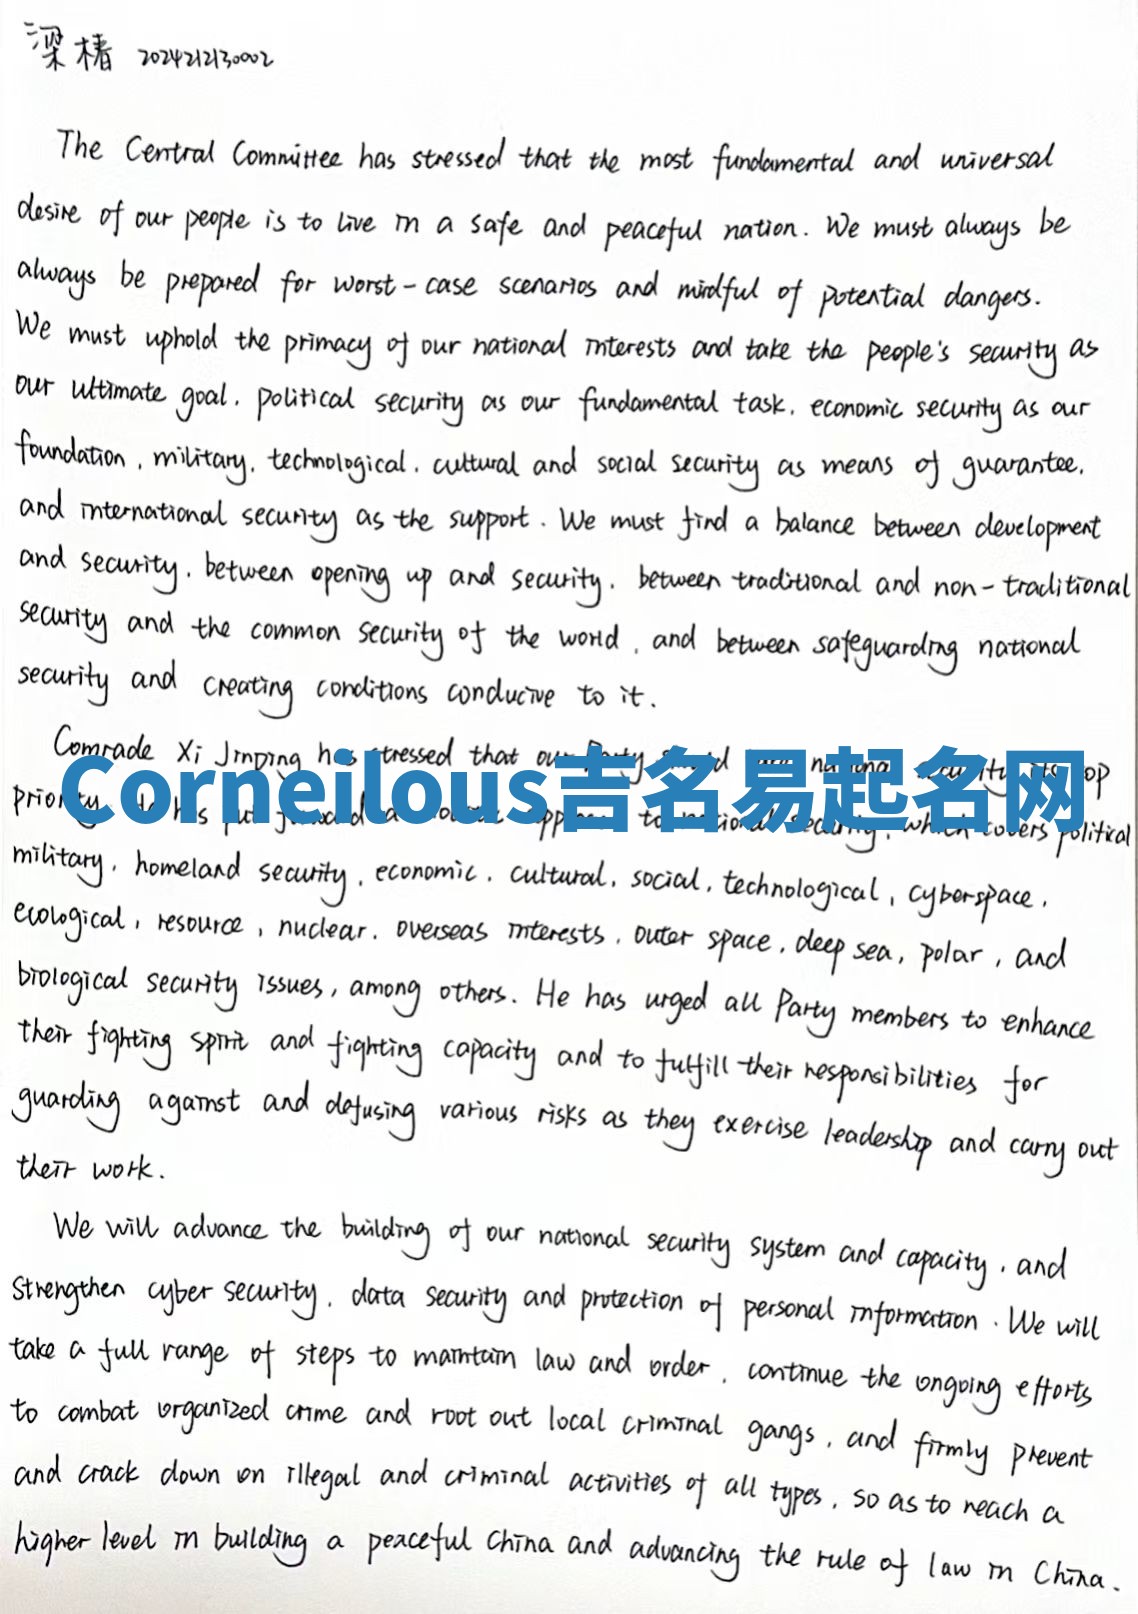 梁椿 2024212130002
The Central Committee has stressed that the most fundamental and universal
desire of our people is to live in a safe and peaceful nation. We must always be
always be prepared for worst-case scenarios and mindful of potential dangers.
We must uphold the primacy of our national interests and take the people's security as
our ultimate goal, political security as our fundamental task, economic security as our
foundation, military, technological, cultural and social security as means of guarantee,
and international security as the support. We must find a balance between development
and security, between opening up and security, between traditional and non-traditional
security and the common security of the world, and between safeguarding national
security and creating conditions conducive to it.
Comrade Xi Jinping has stressed that our Party national security its top
Corneilous吉名易起名网
priority. He has put forward a to national security, which covers political
military, homeland security, economic, cultural, social, technological, cyberspace,
ecological, resource, nuclear, overseas interests, outer space, deep sea, polar, and
biological security issues, among others. He has urged all Party members to enhance
their fighting spirit and fighting capacity and to fulfill their responsibilities for
guarding against and defusing various risks as they exercise leadership and carry out
their work.
We will advance the building of our national security system and capacity, and
strengthen cyber security, data security and protection of personal information. We will
take a full range of steps to maintain law and order, continue the ongoing efforts
to combat organized crime and root out local criminal gangs, and firmly prevent
and crack down on illegal and criminal activities of all types, so as to reach a
higher level in building a peaceful China and advancing the rule of law in China.